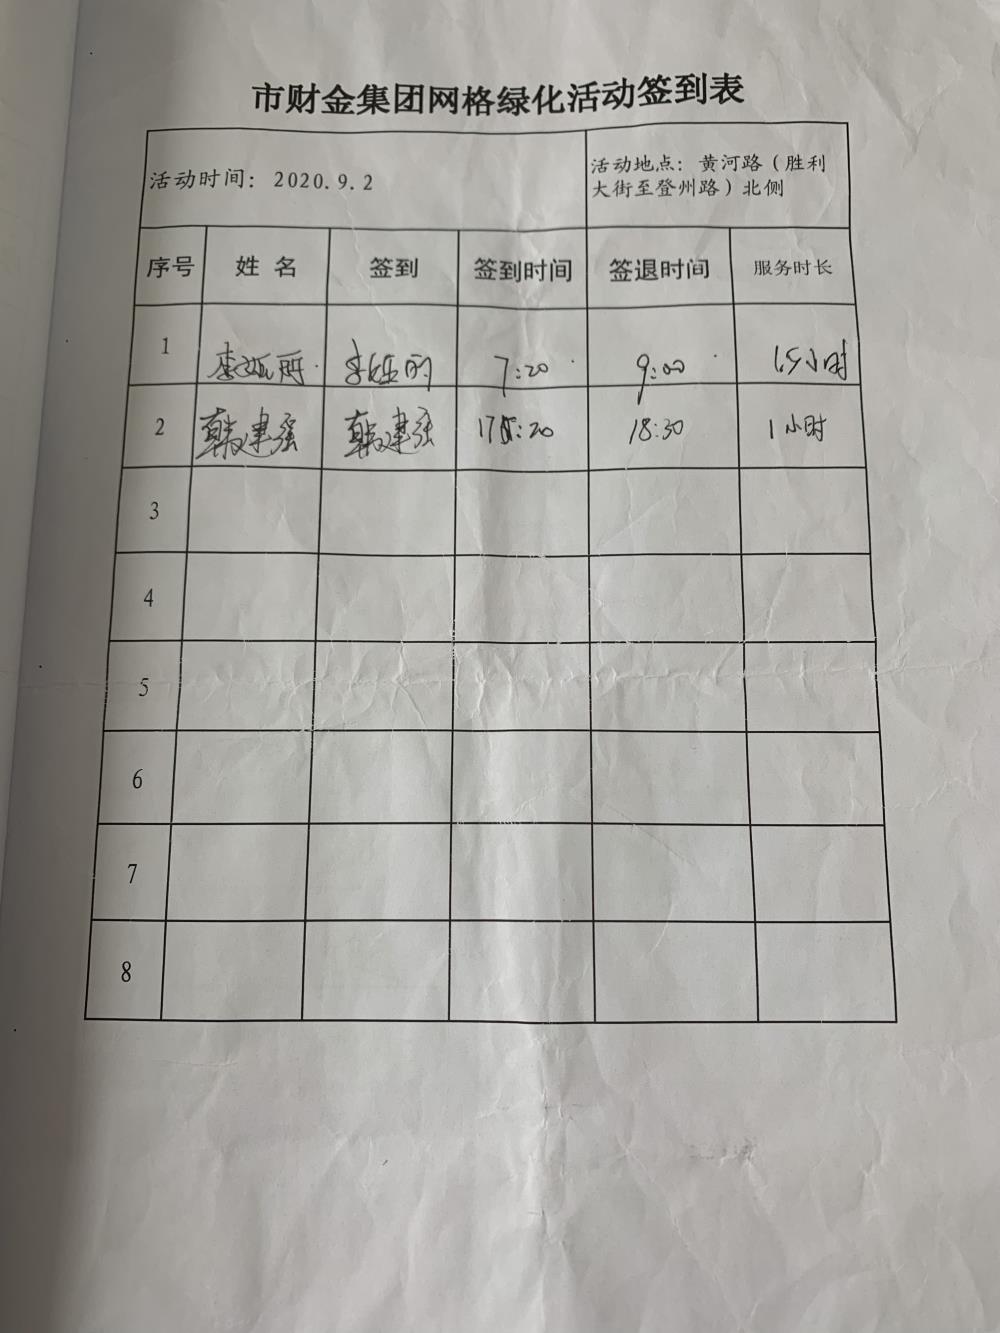 市财金集团网格绿化活动签到表
活动时间：2020.9.2
活动地点：黄河路（胜利
大街至登州路）北侧
序号 姓 名 签到 签到时间 签退时间 服务时长
1 7:20 9:00 1.5小时
2 韩建强 韩建强 17:20 18:30 1小时
3
4
5
6
7
8